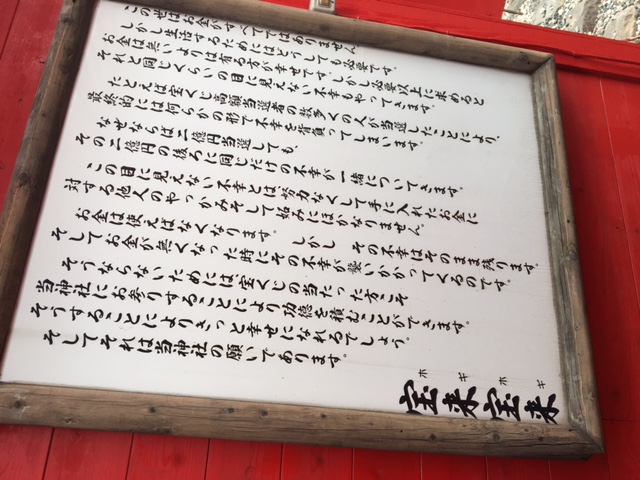 この世はお金がすべてではありません
しかし生活するためにはどうしても必要です。
お金は無いよりは有る方が幸せです。しかし必要以上に求めると
それと同じくらいの目に見えない不幸もやってきます。
たとえば宝くじ高額当選者の数多くの人が当選したことにより、
最終的には何らかの形で不幸を背負ってしまいます。
なぜならば二億円当選しても、
その二億円の後ろに同じだけの不幸が一緒についてきます。
この目に見えない不幸とは努力なくして手に入れたお金に
対する他人のやっかみそして妬みにほかなりません。
お金は使えばなくなります。しかし その不幸はそのまま残ります。
そしてお金が無くなった時にその不幸が襲いかかってくるのです。
そうならないためには宝くじの当たった方こそ
当神社にお参りすることにより功徳を積むことができます。
そうすることによりきっと幸せになれるでしょう。
そしてそれは当神社の願いであります。
ホ ギ ホ ギ
宝来宝来